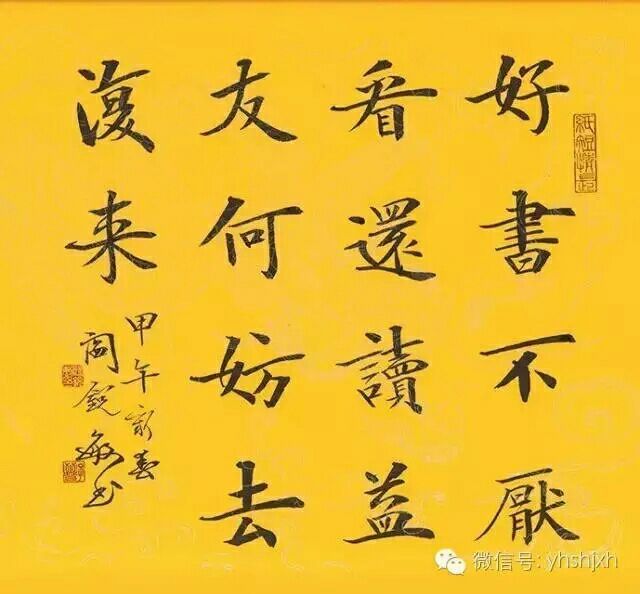 好書不厭
看還讀益
友何妨去
復来
甲午新春
閻銳敏书
紙短情長
微信号: yhshjxh